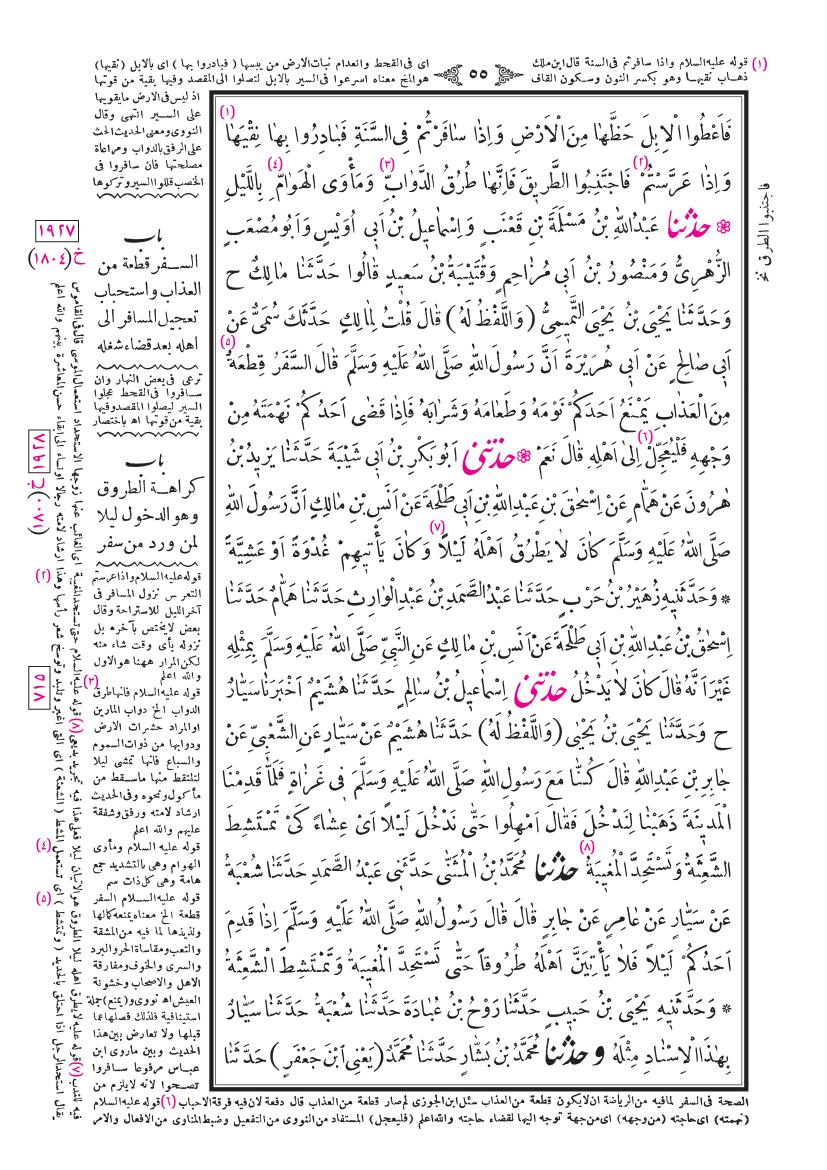 (١) قوله عليه السلام واذا سافرتم فى السنة قال ابن ملك
ذهاب نقيها وهو بكسر النون وسكون القاف
﴿ ٥٥ ﴾
اى فى القحط وانعدام نبات الارض من يبسها (فبادروا بها) اى بالابل (نقيها)
هو المخ معناه اسرعوا فى السير بالابل لتصلوا الى المقصد وفيها بقية من قوتها
اذ ليس فى الارض ما يقويها
على السير انتهى وقال
النووى ومعنى الحديث الحث
على الرفق بالدواب ومراعاة
مصلحتها فان سافروا فى
الخصب قللوا السير وتركوها
فَاَعْطُوا الْاِبِلَ حَظَّهَا مِنَ الْاَرْضِ وَاِذَا سَافَرْتُمْ فِى السَّنَةِ فَبَادِرُوا بِهَا نِقْيَهَا (١)
وَاِذَا عَرَّسْتُمْ (٢) فَاجْتَنِبُوا الطَّرِيقَ فَاِنَّهَا طُرُقُ الدَّوَابِّ (٣) وَمَأْوَى الْهَوَامِّ (٤) بِاللَّيْلِ
❋ حَدَّثَنَا عَبْدُاللهِ بْنُ مَسْلَمَةَ بْنِ قَعْنَبٍ وَاِسْمَاعِيلُ بْنُ اَبِى اُوَيْسٍ وَاَبُو مُصْعَبٍ
الزُّهْرِىُّ وَمَنْصُورُ بْنُ اَبِى مُزَاحِمٍ وَقُتَيْبَةُ بْنُ سَعِيدٍ قَالُوا حَدَّثَنَا مَالِكٌ ح
وَحَدَّثَنَا يَحْيَى بْنُ يَحْيَى التَّمِيمِىُّ (وَاللَّفْظُ لَهُ) قَالَ قُلْتُ لِمَالِكٍ حَدَّثَكَ سُمَىٌّ عَنْ
اَبِى صَالِحٍ عَنْ اَبِى هُرَيْرَةَ اَنَّ رَسُولَ اللهِ صَلَّى اللهُ عَلَيْهِ وَسَلَّمَ قَالَ السَّفَرُ قِطْعَةٌ (٥)
مِنَ الْعَذَابِ يَمْنَعُ اَحَدَكُمْ نَوْمَهُ وَطَعَامَهُ وَشَرَابَهُ فَاِذَا قَضَى اَحَدُكُمْ نَهْمَتَهُ مِنْ
وَجْهِهِ فَلْيُعَجِّلْ (٦) اِلَى اَهْلِهِ قَالَ نَعَمْ ❋ حَدَّثَنِى اَبُو بَكْرِ بْنُ اَبِى شَيْبَةَ حَدَّثَنَا يَزِيدُ بْنُ
هٰرُونَ عَنْ هَمَّامٍ عَنْ اِسْحٰقَ بْنِ عَبْدِاللهِ بْنِ اَبِى طَلْحَةَ عَنْ اَنَسِ بْنِ مَالِكٍ اَنَّ رَسُولَ اللهِ
صَلَّى اللهُ عَلَيْهِ وَسَلَّمَ كَانَ لَا يَطْرُقُ اَهْلَهُ لَيْلاً (٧) وَكَانَ يَأْتِيهِمْ غُدْوَةً اَوْ عَشِيَّةً
* وَحَدَّثَنِيهِ زُهَيْرُ بْنُ حَرْبٍ حَدَّثَنَا عَبْدُ الصَّمَدِ بْنُ عَبْدِ الْوَارِثِ حَدَّثَنَا هَمَّامٌ حَدَّثَنَا
اِسْحٰقُ بْنُ عَبْدِاللهِ بْنِ اَبِى طَلْحَةَ عَنْ اَنَسِ بْنِ مَالِكٍ عَنِ النَّبِىِّ صَلَّى اللهُ عَلَيْهِ وَسَلَّمَ بِمِثْلِهِ
غَيْرَ اَنَّهُ قَالَ كَانَ لَا يَدْخُلُ حَدَّثَنِى اِسْمَاعِيلُ بْنُ سَالِمٍ حَدَّثَنَا هُشَيْمٌ اَخْبَرَنَا سَيَّارٌ
ح وَحَدَّثَنَا يَحْيَى بْنُ يَحْيَى (وَاللَّفْظُ لَهُ) حَدَّثَنَا هُشَيْمٌ عَنْ سَيَّارٍ عَنِ الشَّعْبِىِّ عَنْ
جَابِرِ بْنِ عَبْدِاللهِ قَالَ كُنَّا مَعَ رَسُولِ اللهِ صَلَّى اللهُ عَلَيْهِ وَسَلَّمَ فِى غَزَاةٍ فَلَمَّا قَدِمْنَا
الْمَدِينَةَ ذَهَبْنَا لِنَدْخُلَ فَقَالَ اَمْهِلُوا حَتَّى نَدْخُلَ لَيْلاً اَىْ عِشَاءً كَىْ تَمْتَشِطَ
الشَّعِثَةُ وَتَسْتَحِدَّ الْمُغِيبَةُ (٨) حَدَّثَنَا مُحَمَّدُ بْنُ الْمُثَنَّى حَدَّثَنِى عَبْدُ الصَّمَدِ حَدَّثَنَا شُعْبَةُ
عَنْ سَيَّارٍ عَنْ عَامِرٍ عَنْ جَابِرٍ قَالَ قَالَ رَسُولُ اللهِ صَلَّى اللهُ عَلَيْهِ وَسَلَّمَ اِذَا قَدِمَ
اَحَدُكُمْ لَيْلاً فَلَا يَأْتِيَنَّ اَهْلَهُ طُرُوقاً حَتَّى تَسْتَحِدَّ الْمُغِيبَةُ وَتَمْتَشِطَ الشَّعِثَةُ
* وَحَدَّثَنِيهِ يَحْيَى بْنُ حَبِيبٍ حَدَّثَنَا رَوْحُ بْنُ عُبَادَةَ حَدَّثَنَا شُعْبَةُ حَدَّثَنَا سَيَّارٌ
بِهٰذَا الْاِسْنَادِ مِثْلَهُ وَحَدَّثَنَا مُحَمَّدُ بْنُ بَشَّارٍ حَدَّثَنَا مُحَمَّدٌ (يَعْنِى ابْنَ جَعْفَرٍ) حَدَّثَنَا
فاجتنبوا الطرق نخ
باب
السفر قطعة من
العذاب واستحباب
تعجيل المسافر الى
اهله بعد قضاء شغله
ترعى فى بعض النهار وان
سافروا فى القحط عجلوا
السير ليصلوا المقصد وفيها
بقية من قوتها اه باختصار
باب
كراهة الطروق
وهو الدخول ليلا
لمن ورد من سفر
(٢) قوله عليه السلام واذا عرستم
التعريس نزول المسافر فى
آخر الليل للاستراحة وقال
بعض لا يختص بآخره بل
نزوله بأى وقت شاء منه
لكن المرار ههنا هو الاول
والله اعلم
(٣) قوله عليه السلام فانها طرق
الدواب الخ دواب المارين
او المراد حشرات الارض
ودوابها من ذوات السموم
والسباع فانها تمشى ليلا
لتلتقط منها ما سقط من
مأكول ونحوه وفى الحديث
ارشاد لامته ورفق وشفقة
عليهم والله اعلم
(٤) قوله عليه السلام ومأوى
الهوام وهى بالتشديد جمع
هامة وهى كل ذات سم
(٥) قوله عليه السلام السفر
قطعة الخ معناه يمنعه كمالها
ولذيذها لما فيه من المشقة
والتعب ومقاساة الحر والبرد
والسرى والخوف ومفارقة
الاهل والاصحاب وخشونة
العيش اه نووى و(يمنع) جملة
استينافية فلذلك فصلها عما
قبلها ولا تعارض بين هذا
الحديث وبين ما روى ابن
عباس مرفوعا سافروا
تصحوا لانه لا يلزم من
الصحة فى السفر لما فيه من الرياضة ان لا يكون قطعة من العذاب سئل ابن الجوزى لم صار قطعة من العذاب قال دفعة لان فيه فرقة الاحباب (٦) قوله عليه السلام
(نهمته) اى حاجته (من وجهه) اى من جهة توجه اليها لقضاء حاجته والله اعلم (فليعجل) المستفاد من النووى من التفعيل وضبط المناوى من الافعال والامر
فيه للندب (٧) قوله لا يطرق اهله ليلا الطروق هو الاتيان ليلا فعلى هذا فيه تجريد بديعى (٨) قوله عليه السلام حتى تستحد المغيبة اى الغائب عنها زوجها الاستحداد استعمال الموسى قال فى القاموس
يقال استحد الرجل اذا احتلق بالحديد (وتمتشط) اى تستعمل المشط (الشعثة) اى التى اغبر وتلبد وتوسخ شعر رأسها وهذا ارشاد لامته رجالا او نساء الى ابقاء حسن المعاشرة بينهم والله اعلم
١٩٢٧
خ (١٨٠٤)
١٩٢٧
خ (١٨٠٠)
٥١٨